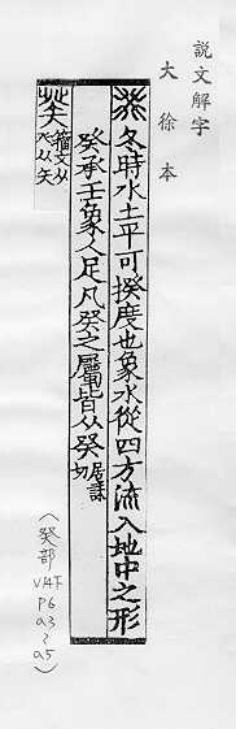 説文解字
大徐本
癸冬時水土平可揆度也象水從四方流入地中之形
癸承壬象人足凡癸之屬皆从癸居誄切
籀文从癶从矢
(癸部
V14下
P6
a3
~
a5)